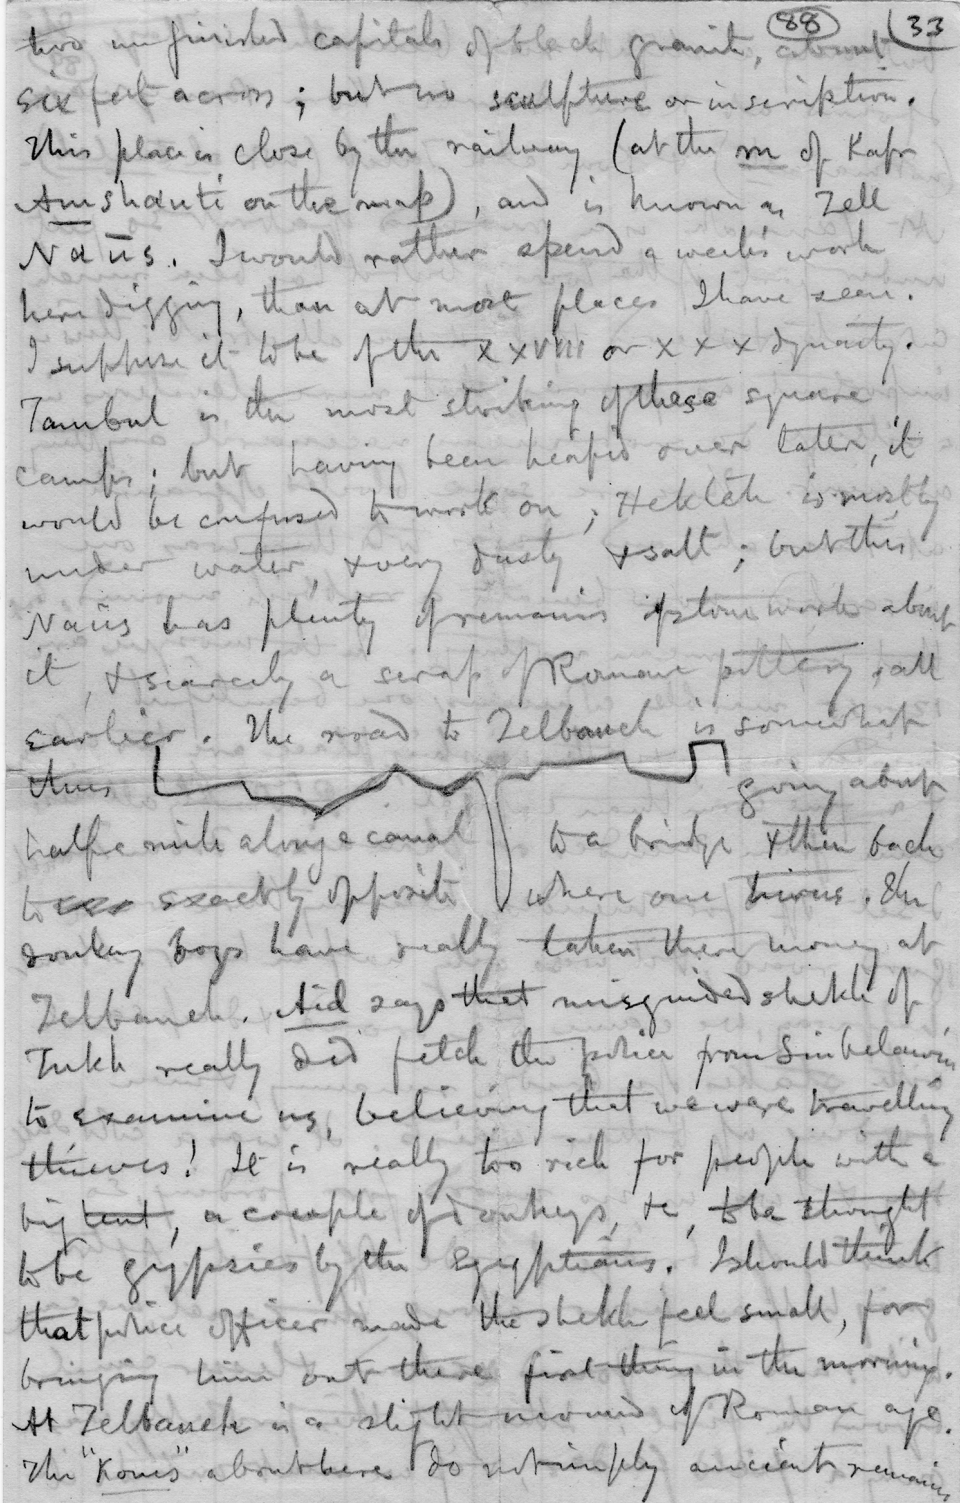 88 33
two unfinished capitals of black granite, about
six feet across; but no sculpture or inscription.
This place is close by the railway (at the m of Kafr
Amshauti on the map), and is known as Tell
Naūs. I would rather spend a week's work
here digging, than at most places I have seen.
I suppose it to be of the XXVIII or XXX dynasty.
Tambul is the most striking of these square
camps; but having been heaped over later, it
would be confused to work on; Hekleh is mostly
under water, & very dusty & salt; but this
Naūs has plenty of remains of stone work about
it, & scarcely a scrap of Roman pottery, all
earlier. The road to Zelbaneh is somewhat
thus going about
half a mile along a canal to a bridge & then back
to exactly opposite where one turns. The
donkey boys have really taken there money at
Zelbaneh. Aid says that misguided shekh of
Tukh really did fetch the police from Sinbelawin
to examine us, believing that we were travelling
thieves! It is really too rich for people with a
big tent, a couple of donkeys, &c, to be thought
to be gypsies by the Egyptians. I should think
that police officer made the shekh feel small, for
bringing him out there first thing in the morning.
At Zelbaneh is a slight mound of Roman age.
The "Koms" about here do not imply ancient remains